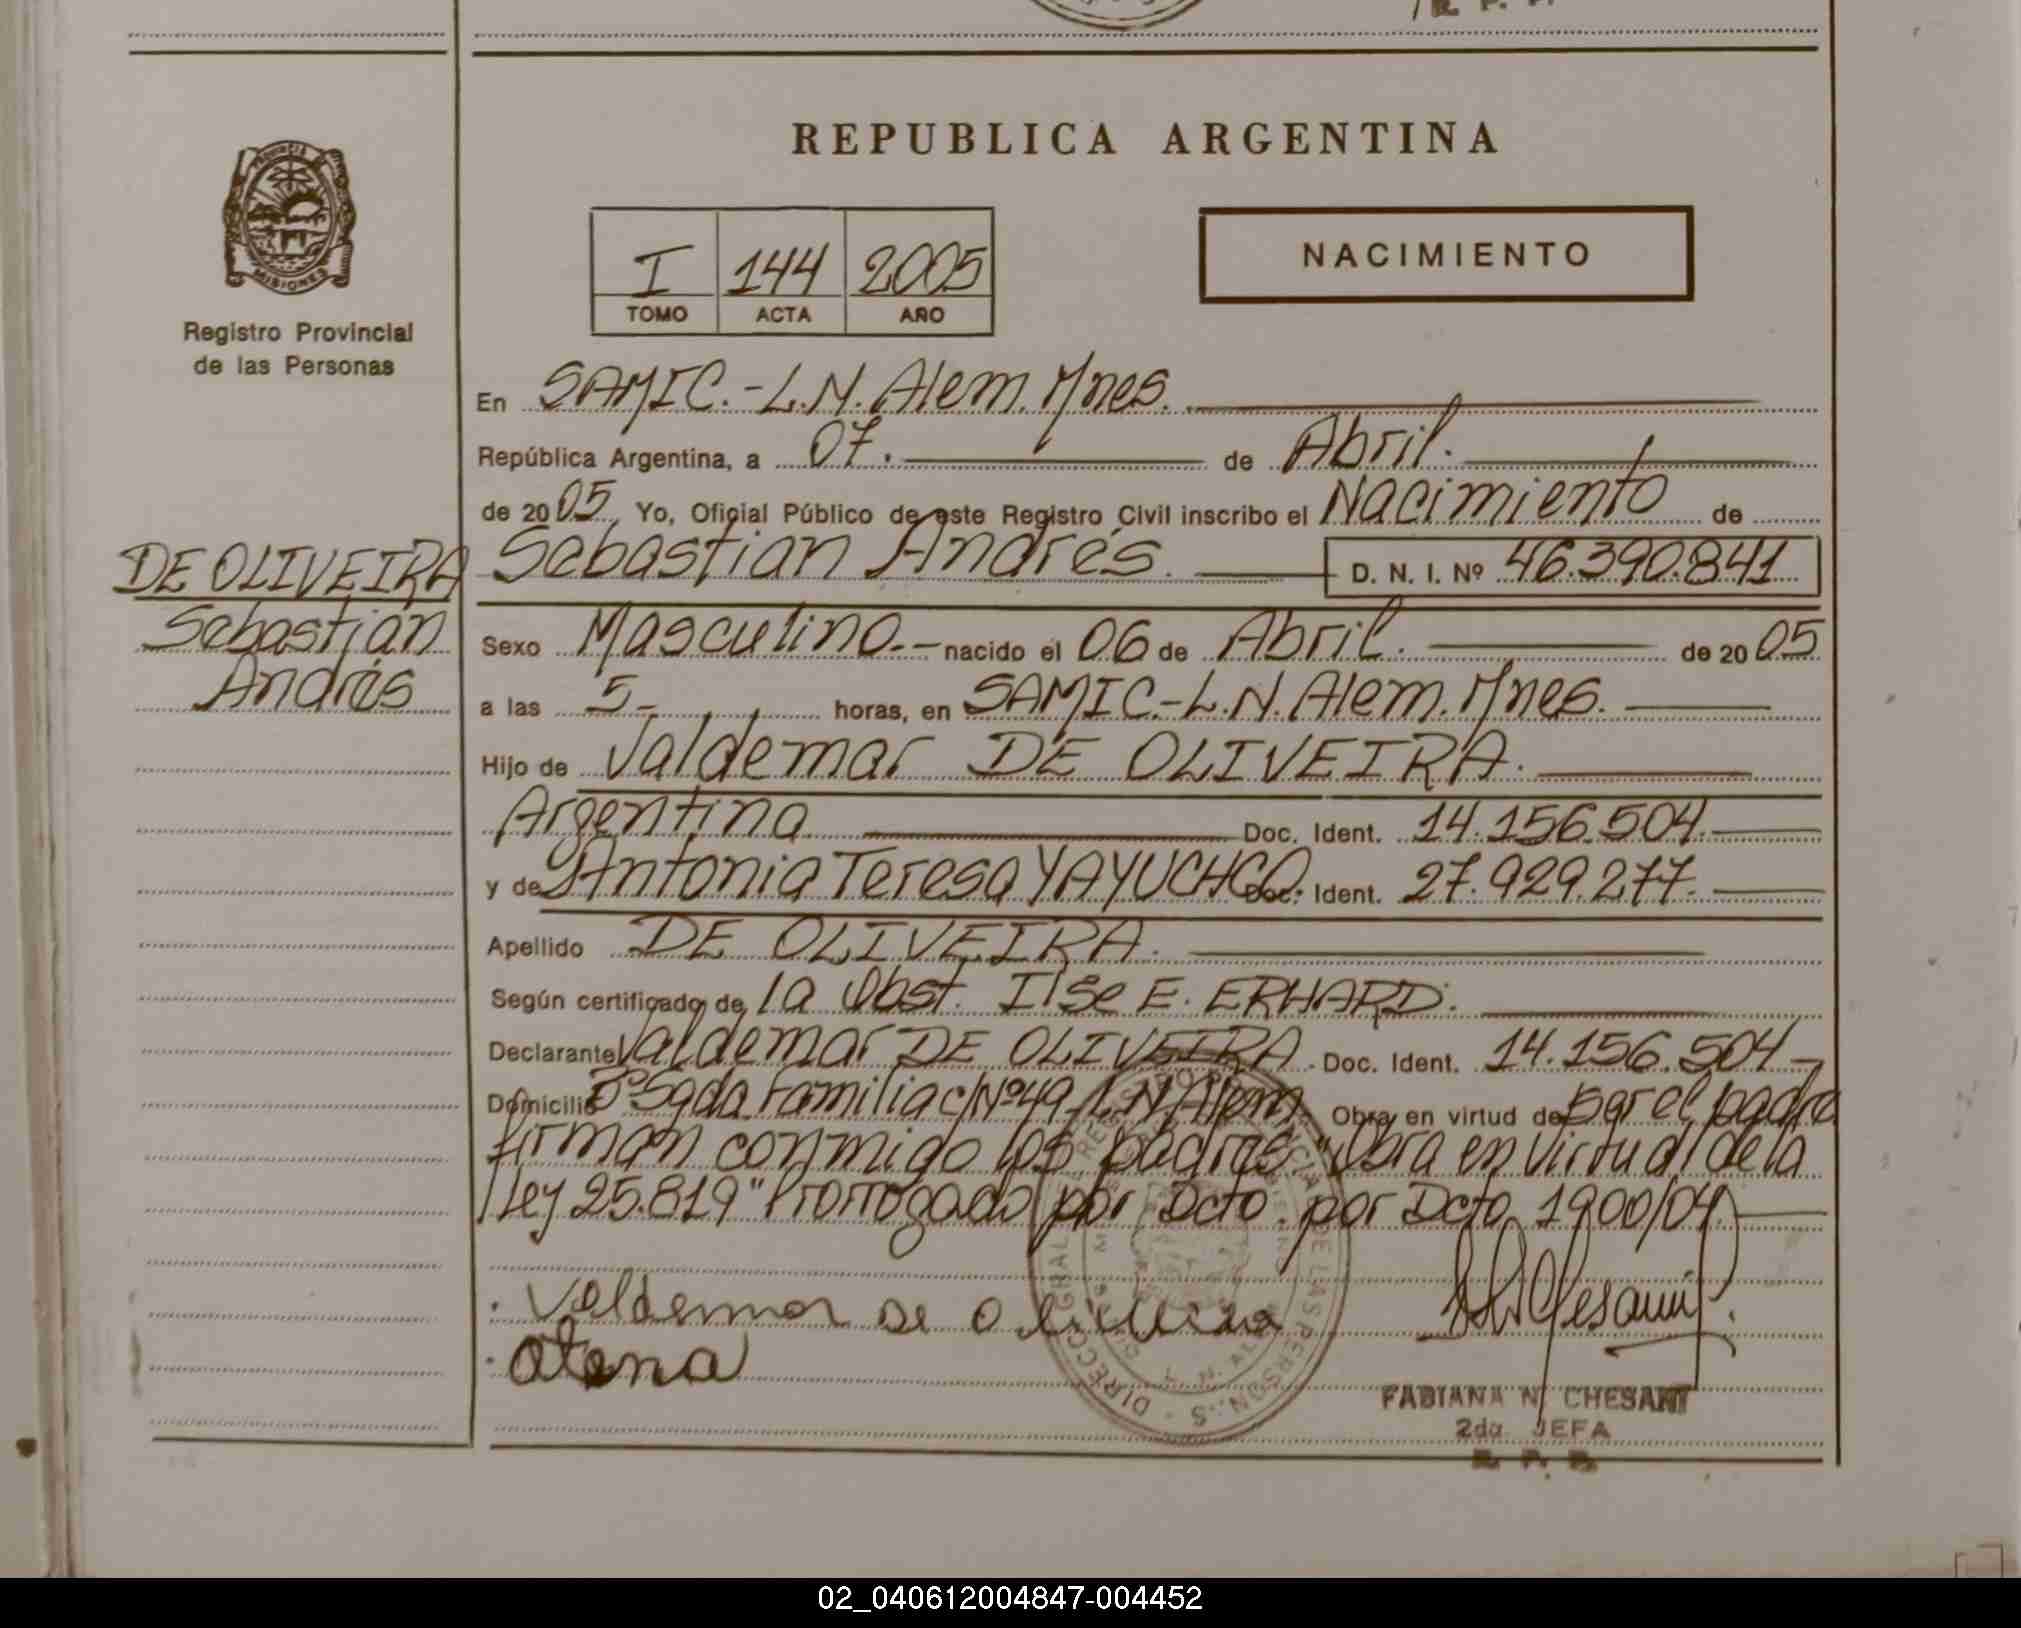 REPUBLICA ARGENTINA
PROVINCIA
MISIONES
Registro Provincial
de las Personas
I 144 2005
TOMO ACTA AÑO
NACIMIENTO
En SAMIC.-L.N.Alem.Mnes.
República Argentina, a 07. de Abril.
de 2005 Yo, Oficial Público de este Registro Civil inscribo el Nacimiento de
DE OLIVEIRA
Sebastián
Andrés
Sebastian Andrés. D. N. I. Nº 46.390.841
Sexo Masculino.- nacido el 06 de Abril. de 2005
a las 5- horas, en SAMIC.-L.N.Alem.Mnes.
Hijo de Valdemar DE OLIVEIRA.
Argentina Doc. Ident. 14.156.504.
y de Antonia Teresa YAYUCHCO Doc. Ident. 27.929.277.
Apellido DE OLIVEIRA.
Según certificado de la Obst. Ilse E. ERHARD.
Declarante Valdemar DE OLIVEIRA. Doc. Ident. 14.156.504-
Domicilio Bº Sgda Familia c/Nº49-L.N.Alem. Obra en virtud de ser el padre
firman conmigo los padres "Obra en virtud de la
Ley 25.819" Prorrogado por Dcto. por Dcto 1900/04.
Valdemar de oliveira
FABIANA N. CHESANI
2da. JEFA
R. P. P.
02_040612004847-004452